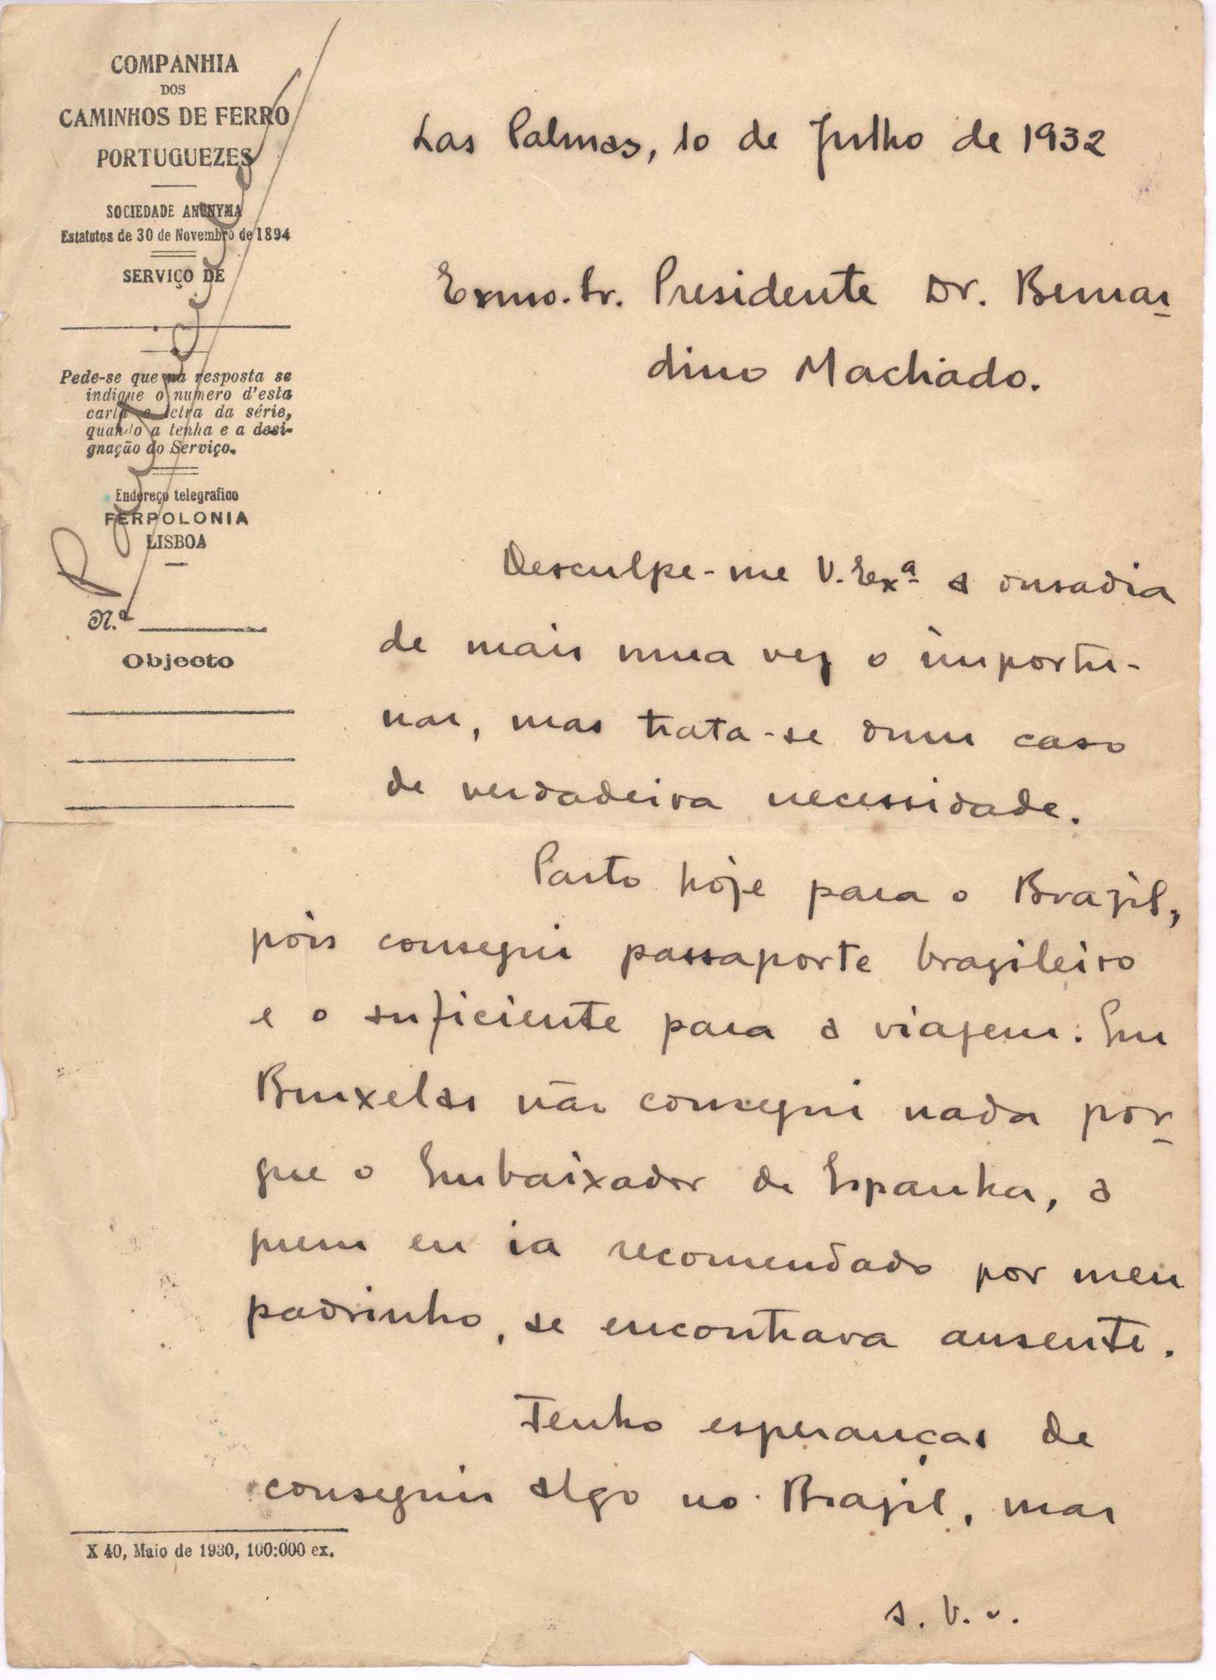 COMPANHIA
DOS
CAMINHOS DE FERRO
PORTUGUEZES
SOCIEDADE ANONYMA
Estatutos de 30 de Novembro de 1894
SERVIÇO DE
Pede-se que na resposta se
indique o numero d'esta
carta e letra da série,
quando a tenha e a desi-
gnação do Serviço.
Endereço telegrafico
FERPOLONIA
LISBOA
N.º
Objecto
Las Palmas, 10 de Julho de 1932
Exmo. Sr. Presidente Dr. Bernar-
dino Machado.
Desculpe-me V. Exª a ousadia
de mais uma vez o importu-
nar, mas trata-se dum caso
de verdadeira necessidade.
Parto hoje para o Brazil,
pois consegui passaporte brazileiro
e o suficiente para a viagem. Em
Bruxelas não consegui nada por-
que o Embaixador de Espanha, a
quem eu ia recomendado por meu
padrinho, se encontrava ausente.
Tenho esperanças de
conseguir algo no Brazil, mas
X 40, Maio de 1930, 100:000 ex.
s. V. v.